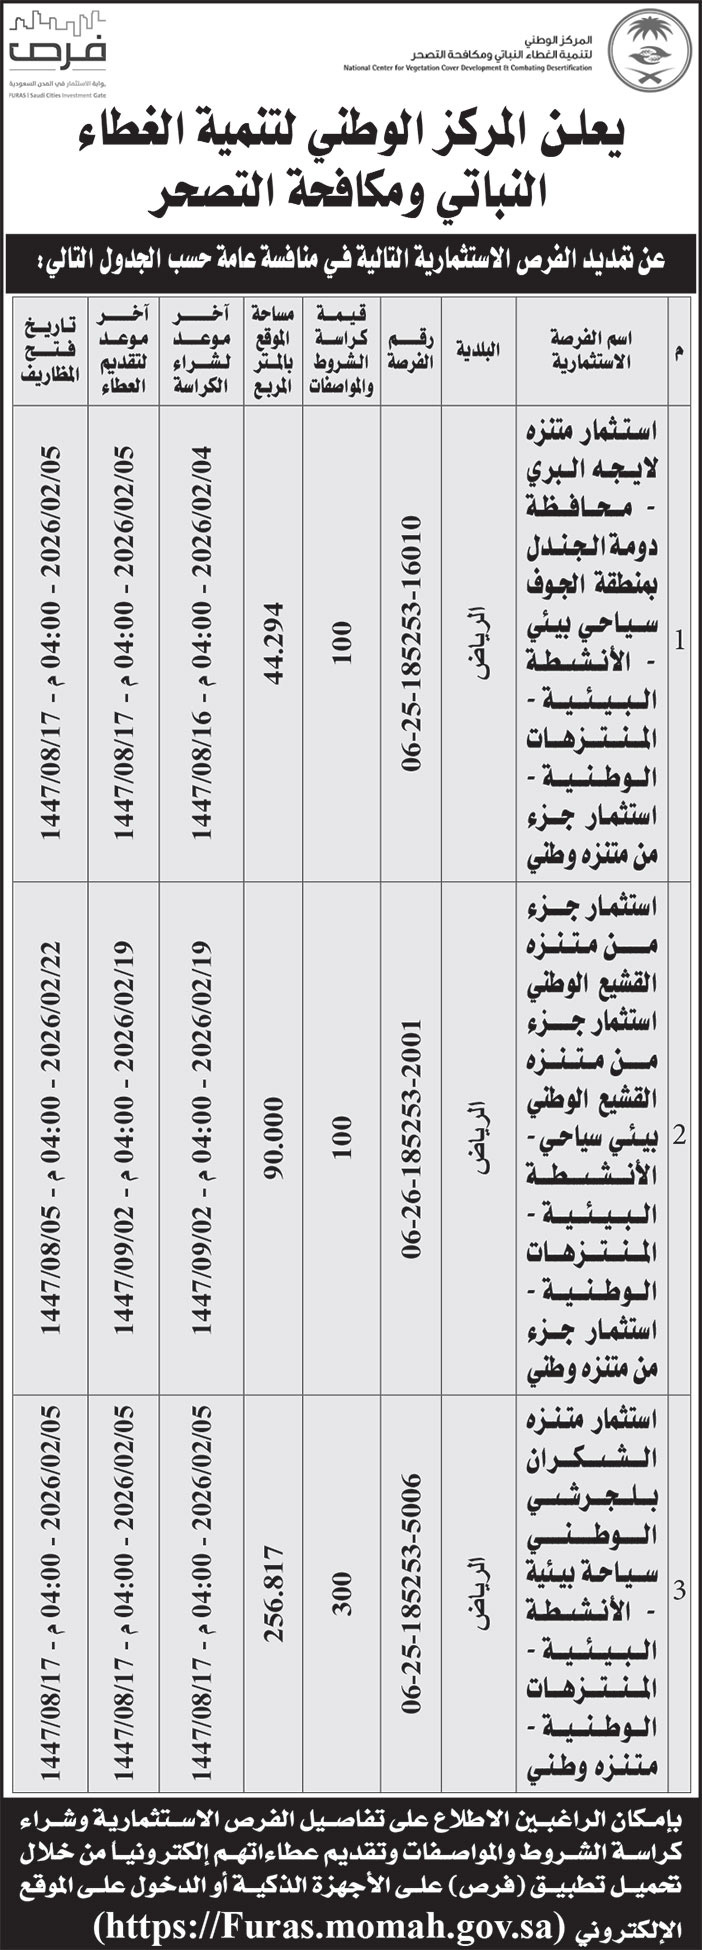 فرص
بوابة الاستثمار في المدن السعودية
FURAS | Saudi Cities Investment Gate
المركز الوطني
لتنمية الغطاء النباتي ومكافحة التصحر
National Center for Vegetation Cover Development & Combating Desertification
يعلن المركز الوطني لتنمية الغطاء
النباتي ومكافحة التصحر
عن تمديد الفرص الاستثمارية التالية في منافسة عامة حسب الجدول التالي:
م
اسم الفرصة
الاستثمارية
البلدية
رقم
الفرصة
قيمة
كراسة
الشروط
والمواصفات
مساحة
الموقع
بالمتر
المربع
آخر
موعد
لشراء
الكراسة
آخر
موعد
لتقديم
العطاء
تاريخ
فتح
المظاريف
1
استثمار متنزه
لايجه البري
- محافظة
دومة الجندل
بمنطقة الجوف
سياحي بيئي
- الأنشطة
البيئية -
المنتزهات
الوطنية -
استثمار جزء
من متنزه وطني
الرياض
06-25-185253-16010
100
44.294
1447/08/16 - 04:00 م - 2026/02/04
1447/08/17 - 04:00 م - 2026/02/05
1447/08/17 - 04:00 م - 2026/02/05
2
استثمار جزء
من متنزه
القشيع الوطني
استثمار جزء
من متنزه
القشيع الوطني
بيئي سياحي -
الأنشطة
البيئية -
المنتزهات
الوطنية -
استثمار جزء
من متنزه وطني
الرياض
06-26-185253-2001
100
90.000
1447/09/02 - 04:00 م - 2026/02/19
1447/09/02 - 04:00 م - 2026/02/19
1447/08/05 - 04:00 م - 2026/02/22
3
استثمار متنزه
الشكران
بلجرشي
الوطني
سياحة بيئية
- الأنشطة
البيئية -
المنتزهات
الوطنية -
متنزه وطني
الرياض
06-25-185253-5006
300
256.817
1447/08/17 - 04:00 م - 2026/02/05
1447/08/17 - 04:00 م - 2026/02/05
1447/08/17 - 04:00 م - 2026/02/05
بإمكان الراغبين الاطلاع على تفاصيل الفرص الاستثمارية وشراء
كراسة الشروط والمواصفات وتقديم عطاءاتهم إلكترونياً من خلال
تحميل تطبيق (فرص) على الأجهزة الذكية أو الدخول على الموقع
الإلكتروني (https://Furas.momah.gov.sa)